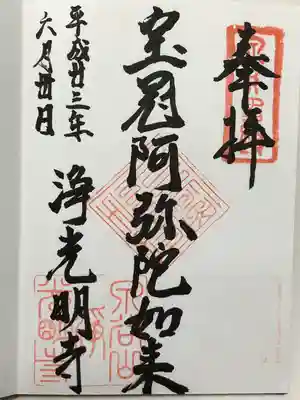 奉拝
宝冠阿弥陀如来
浄光明寺
平成廿三年
六月卅日